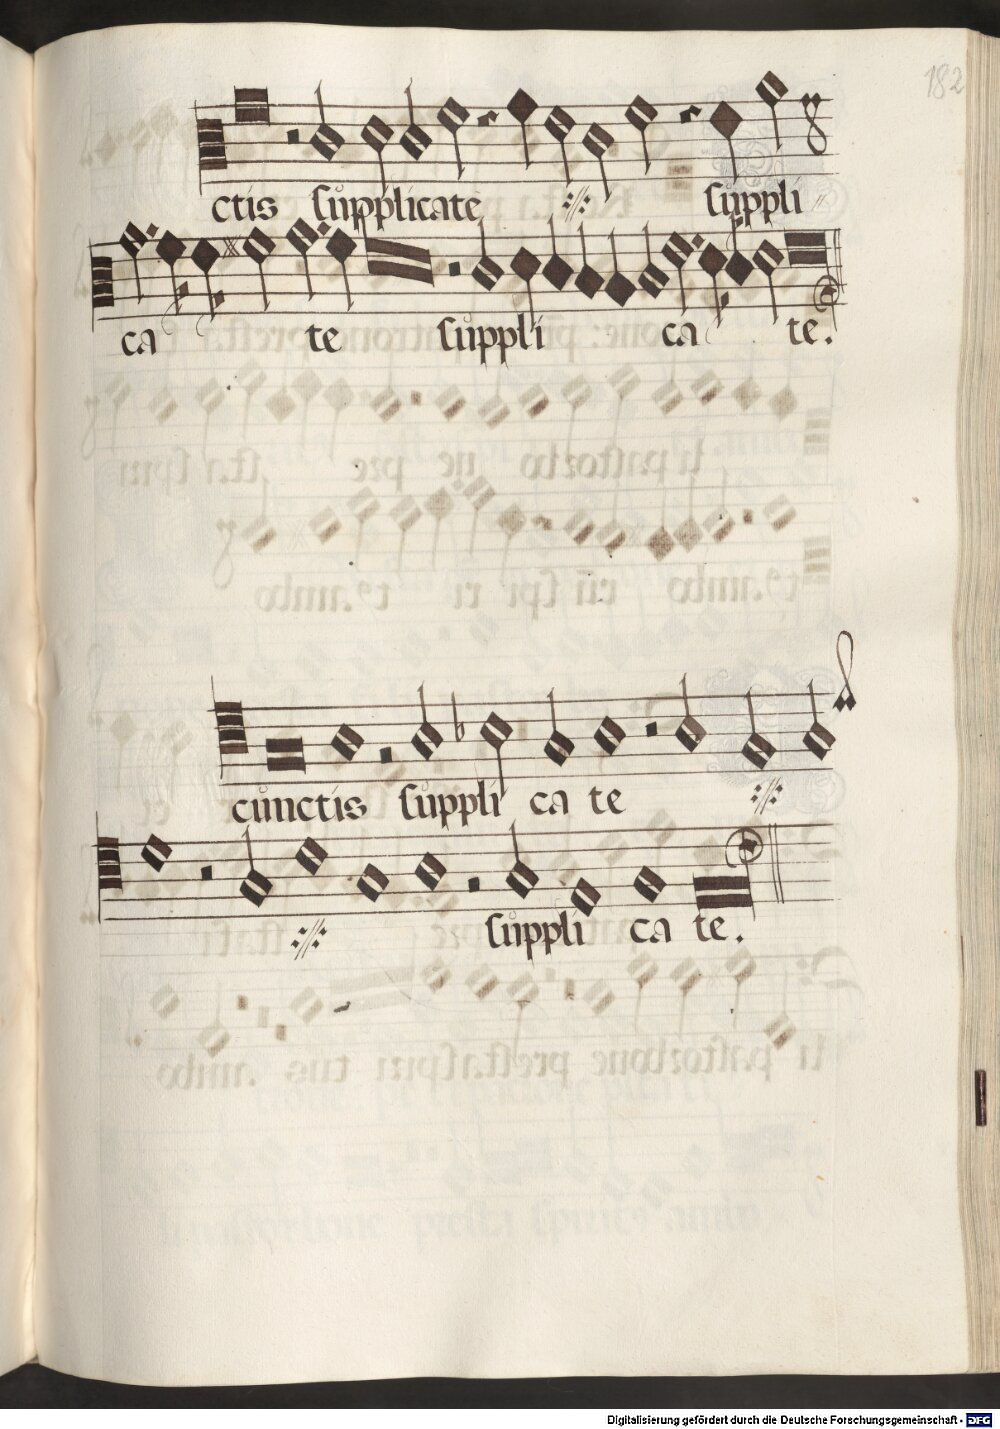 182
ctis supplicate suppli
ca te suppli ca te.
cunctis suppli ca te
suppli ca te.
Digitalisierung gefördert durch die Deutsche Forschungsgemeinschaft - DFG